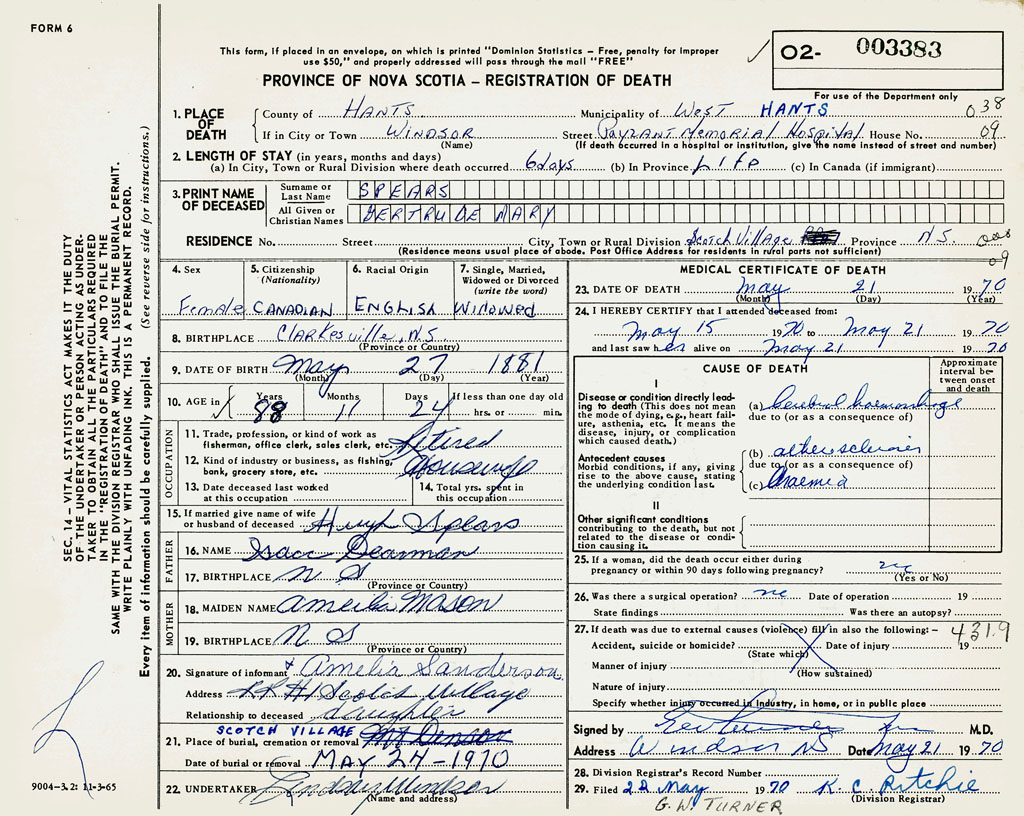 FORM 6
This form, if placed in an envelope, on which is printed "Dominion Statistics – Free, penalty for improper
use $50," and properly addressed will pass through the mail "FREE"
PROVINCE OF NOVA SCOTIA – REGISTRATION OF DEATH
02- 003383
For use of the Department only
1. PLACE OF DEATH
County of HANTS Municipality of West HANTS 038
If in City or Town WINDSOR Street Payzant Memorial Hospital House No. 09
(Name) (If death occurred in a hospital or institution, give the name instead of street and number)
2. LENGTH OF STAY (in years, months and days)
(a) In City, Town or Rural Division where death occurred 6 days (b) In Province Life (c) In Canada (if immigrant)
3. PRINT NAME OF DECEASED
Surname or Last Name SPEARS
All Given or Christian Names GERTRUDE MARY
RESIDENCE No. Street City, Town or Rural Division Scotch Village Province N.S. 008
(Residence means usual place of abode. Post Office Address for residents in rural parts not sufficient) 09
4. Sex Female
5. Citizenship (Nationality) CANADIAN
6. Racial Origin ENGLISH
7. Single, Married, Widowed or Divorced (write the word) Widowed
8. BIRTHPLACE Clarkesville, N.S.
(Province or Country)
9. DATE OF BIRTH May 27 1881
(Month) (Day) (Year)
10. AGE in Years 88 Months 11 Days 24 If less than one day old hrs. or min.
OCCUPATION
11. Trade, profession, or kind of work as fisherman, office clerk, sales clerk, etc. Retired
12. Kind of industry or business, as fishing, bank, grocery store, etc. Housewife
13. Date deceased last worked at this occupation
14. Total yrs. spent in this occupation
15. If married give name of wife or husband of deceased Hugh Spears
FATHER
16. NAME Isacc Dearman
17. BIRTHPLACE N S
(Province or Country)
MOTHER
18. MAIDEN NAME Amelia Mason
19. BIRTHPLACE N S
(Province or Country)
20. Signature of informant x Amelia Sanderson
Address RR #1 Scotch Village
Relationship to deceased daughter
SCOTCH VILLAGE
21. Place of burial, cremation or removal
Date of burial or removal MAY 24-1970
22. UNDERTAKER Lindsay Windsor
(Name and address)
MEDICAL CERTIFICATE OF DEATH
23. DATE OF DEATH May 21 1970
(Month) (Day) (Year)
24. I HEREBY CERTIFY that I attended deceased from:
May 15 1970 to May 21 1970
and last saw her alive on May 21 1970
CAUSE OF DEATH
Approximate interval between onset and death
I
Disease or condition directly leading to death (This does not mean the mode of dying, e.g., heart failure, asthenia, etc. It means the disease, injury, or complication which caused death.)
(a) Cerebral haemorrhage
due to (or as a consequence of)
Antecedent causes
Morbid conditions, if any, giving rise to the above cause, stating the underlying condition last.
(b)
due to (or as a consequence of)
(c) Anaemia
II
Other significant conditions
contributing to the death, but not related to the disease or condition causing it.
25. If a woman, did the death occur either during
pregnancy or within 90 days following pregnancy? no
(Yes or No)
26. Was there a surgical operation? no Date of operation 19
State findings Was there an autopsy?
27. If death was due to external causes (violence) fill in also the following: – 431.9
Accident, suicide or homicide? Date of injury 19
(State which)
Manner of injury
(How sustained)
Nature of injury
Specify whether injury occurred in industry, in home, or in public place
Signed by M.D.
Address Windsor NS Date May 21 1970
28. Division Registrar's Record Number
29. Filed 22 May 1970 K. C. Ritchie
(Division Registrar)
G. W. TURNER
SEC. 14 – VITAL STATISTICS ACT MAKES IT THE DUTY
OF THE UNDERTAKER OR PERSON ACTING AS UNDER-
TAKER TO OBTAIN ALL THE PARTICULARS REQUIRED
IN THE "REGISTRATION OF DEATH" AND TO FILE THE
SAME WITH THE DIVISION REGISTRAR WHO SHALL ISSUE THE BURIAL PERMIT.
WRITE PLAINLY WITH UNFADING INK. THIS IS A PERMANENT RECORD.
Every item of information should be carefully supplied. (See reverse side for instructions.)
9004-3.2: 11-3-65